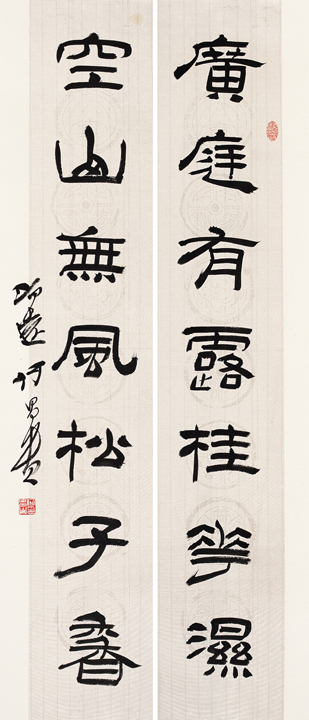 廣庭有露桂花濕
空山無風松子香